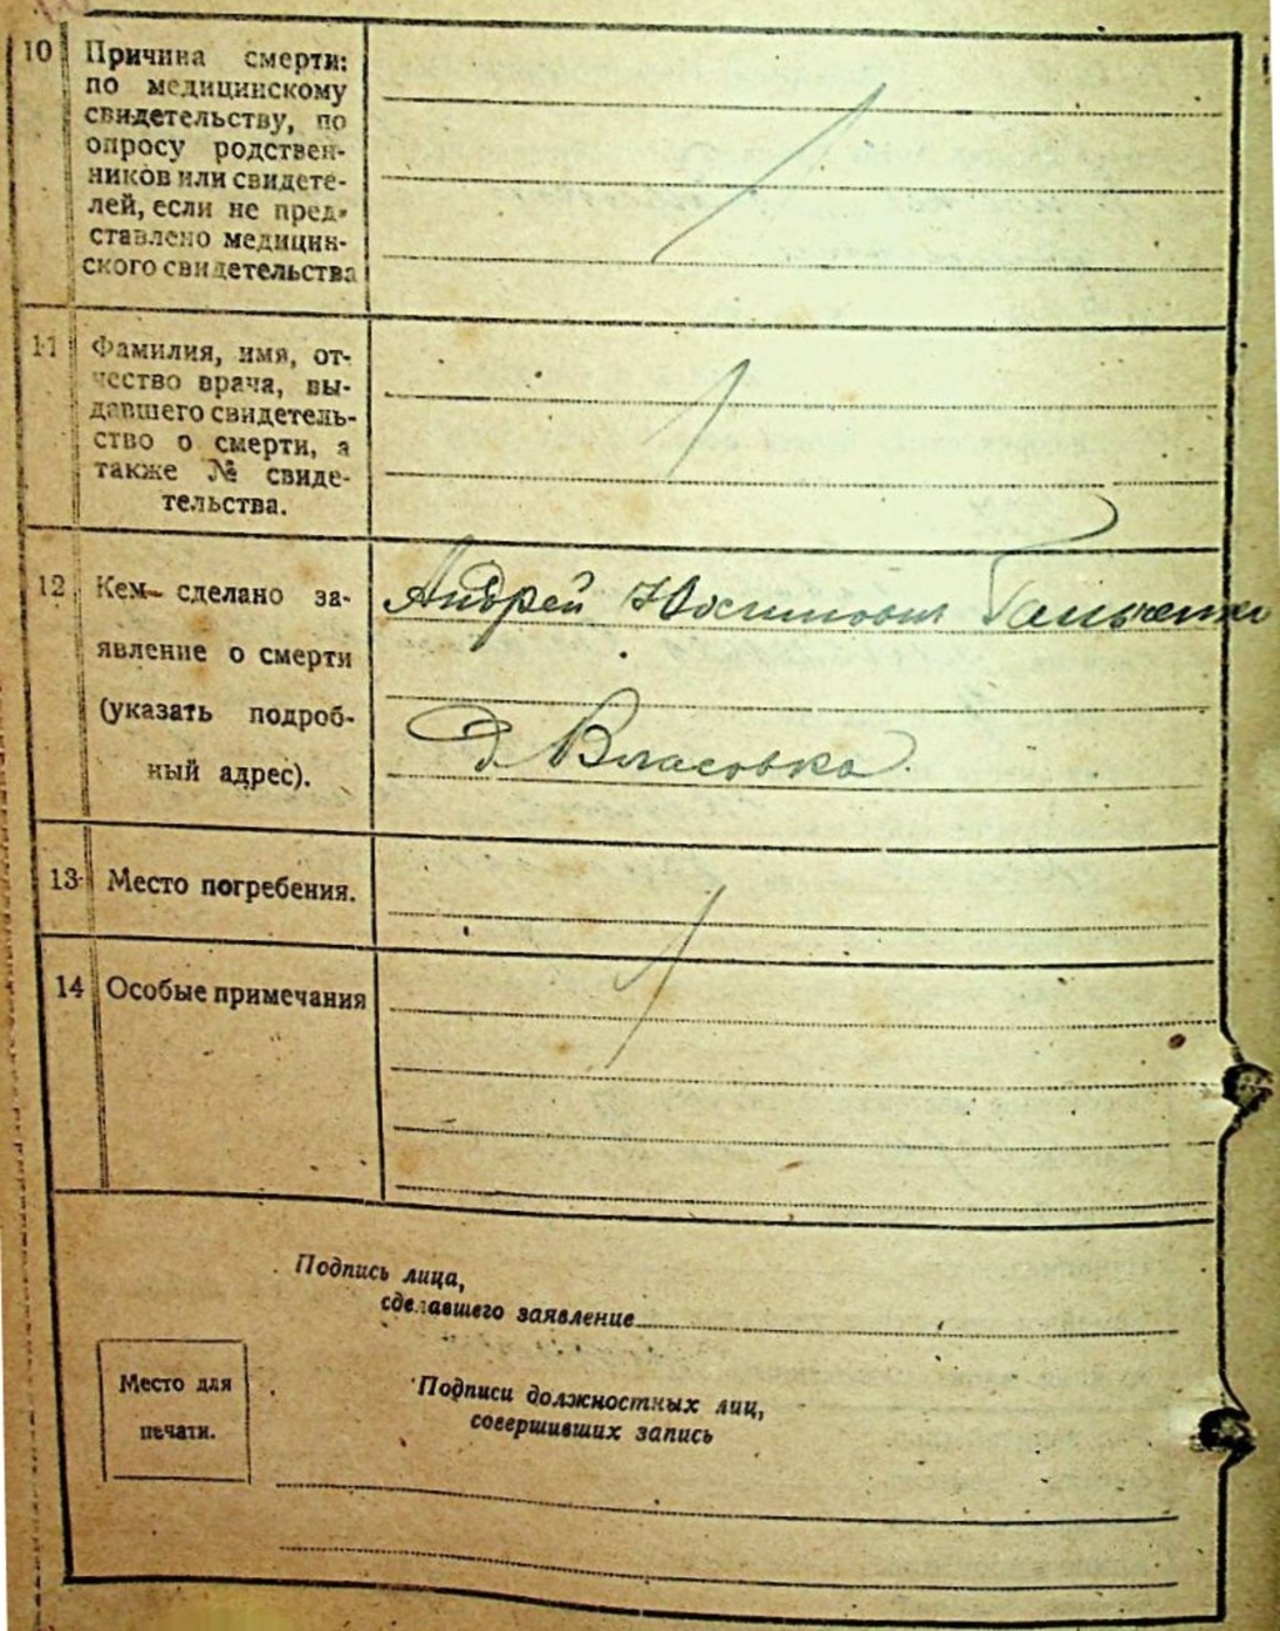 10 Причина смерти:
по медицинскому
свидетельству, по
опросу родствен-
ников или свидете-
лей, если не пред-
ставлено медицин-
ского свидетельства
11 Фамилия, имя, от-
чество врача, вы-
давшего свидетель-
ство о смерти, а
также № свиде-
тельства.
12 Кем сделано за-
явление о смерти
(указать подроб-
ный адрес).
Андрей
д Власовка.
13 Место погребения.
14 Особые примечания
Подпись лица,
сделавшего заявление
Место для
печати.
Подписи должностных лиц,
совершивших запись